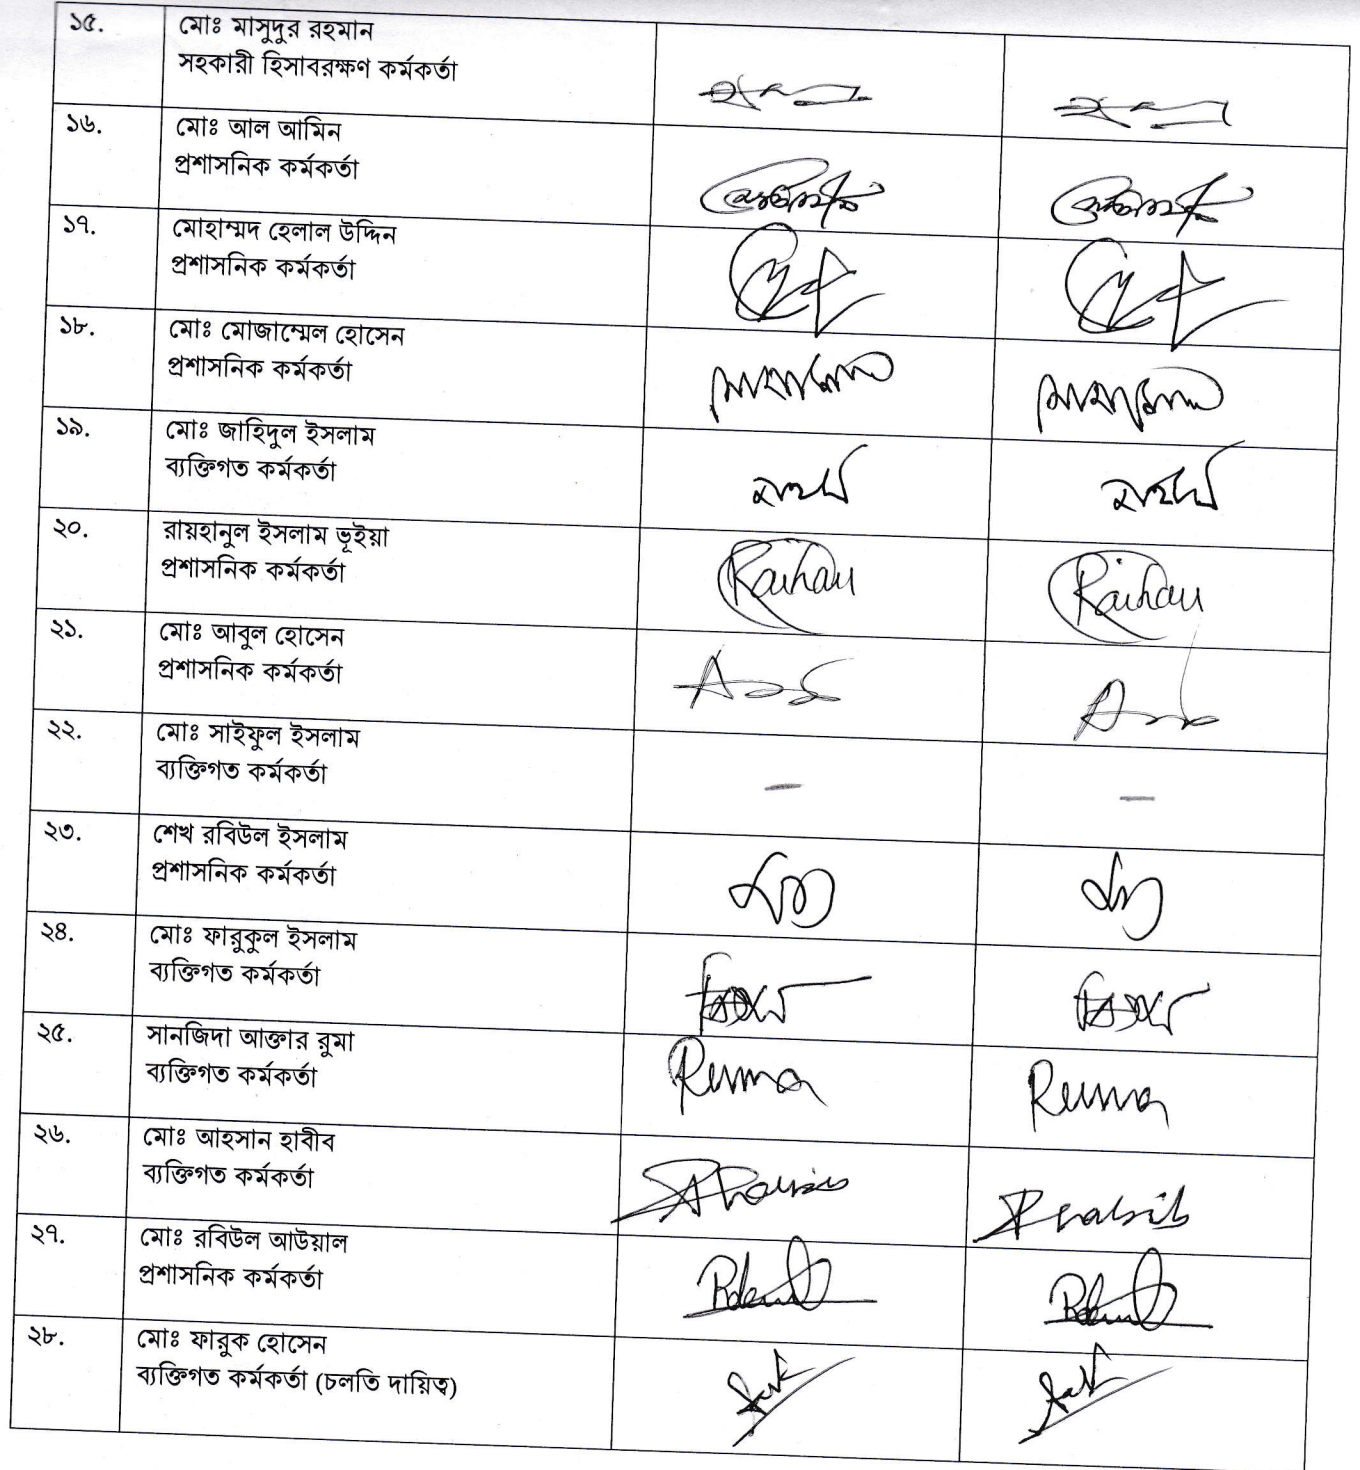 ১৫.
মোঃ মাসুদুর রহমান
সহকারী হিসাবরক্ষণ কর্মকর্তা
১৬.
মোঃ আল আমিন
প্রশাসনিক কর্মকর্তা
১৭.
মোহাম্মদ হেলাল উদ্দিন
প্রশাসনিক কর্মকর্তা
১৮.
মোঃ মোজাম্মেল হোসেন
প্রশাসনিক কর্মকর্তা
১৯.
মোঃ জাহিদুল ইসলাম
ব্যক্তিগত কর্মকর্তা
২০.
রায়হানুল ইসলাম ভূইয়া
প্রশাসনিক কর্মকর্তা
Raihan Raihan
২১.
মোঃ আবুল হোসেন
প্রশাসনিক কর্মকর্তা
২২.
মোঃ সাইফুল ইসলাম
ব্যক্তিগত কর্মকর্তা
– –
২৩.
শেখ রবিউল ইসলাম
প্রশাসনিক কর্মকর্তা
২৪.
মোঃ ফারুকুল ইসলাম
ব্যক্তিগত কর্মকর্তা
২৫.
সানজিদা আক্তার রুমা
ব্যক্তিগত কর্মকর্তা
Ruma Ruma
২৬.
মোঃ আহসান হাবীব
ব্যক্তিগত কর্মকর্তা
২৭.
মোঃ রবিউল আউয়াল
প্রশাসনিক কর্মকর্তা
২৮.
মোঃ ফারুক হোসেন
ব্যক্তিগত কর্মকর্তা (চলতি দায়িত্ব)